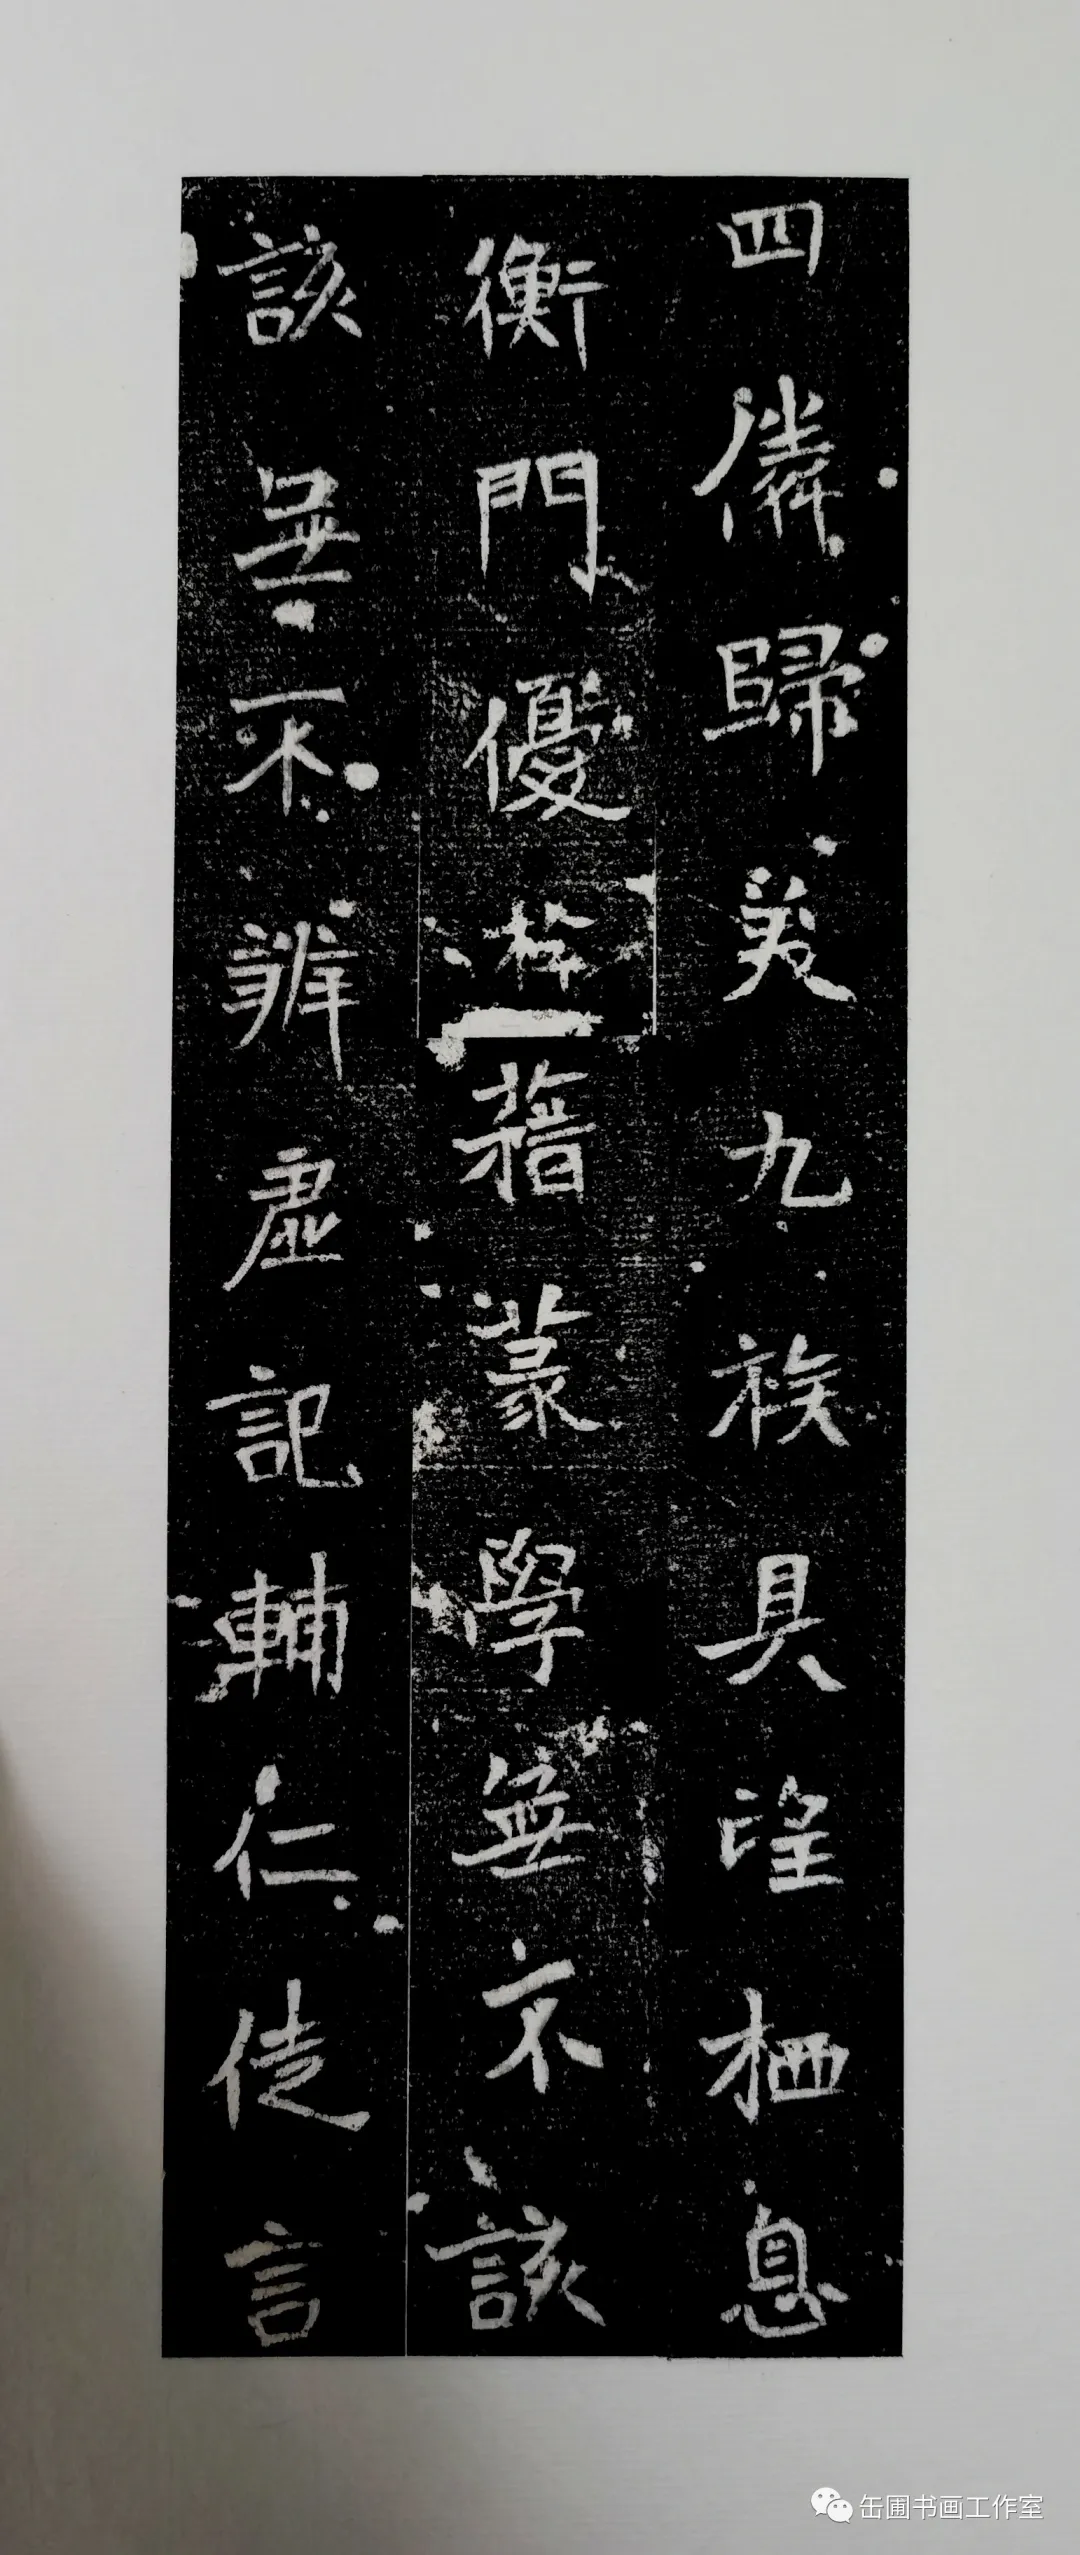 四儯歸美九族具望栖息
衡門優遊藉篆學無不該
該無不辨虛記輔仁徒言
缶圃书画工作室